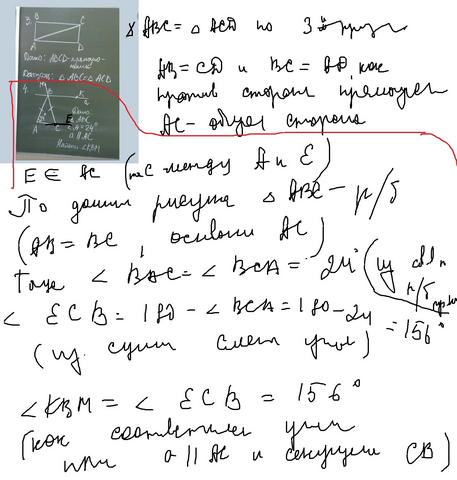 3.
B C
A D
Дано: ABCD – прямоуг-
Доказать: △ ABC = △ ACD
4.
M B K
a
Дано:
△ ABC
∠A = 24°
a || AC
Найти ∠KBM
A C E
△ ABC = △ ACD по 3
AB = CD и BC = AD, как
против сторон
AC – общая сторона
E ∈ AC (т.к C между A и E)
По данным рисунка △ ABC – р/б
(AB = BC, основани AC)
Тогда ∠ BAC = ∠ BCA = 24° (из
р/б
∠ ECB = 180 - ∠ BCA = 180 - 24 = 156°
(из. сумм смеж углы)
∠KBM = ∠ ECB = 156°
(как соответствен углы
при a || AC и секущей CB)